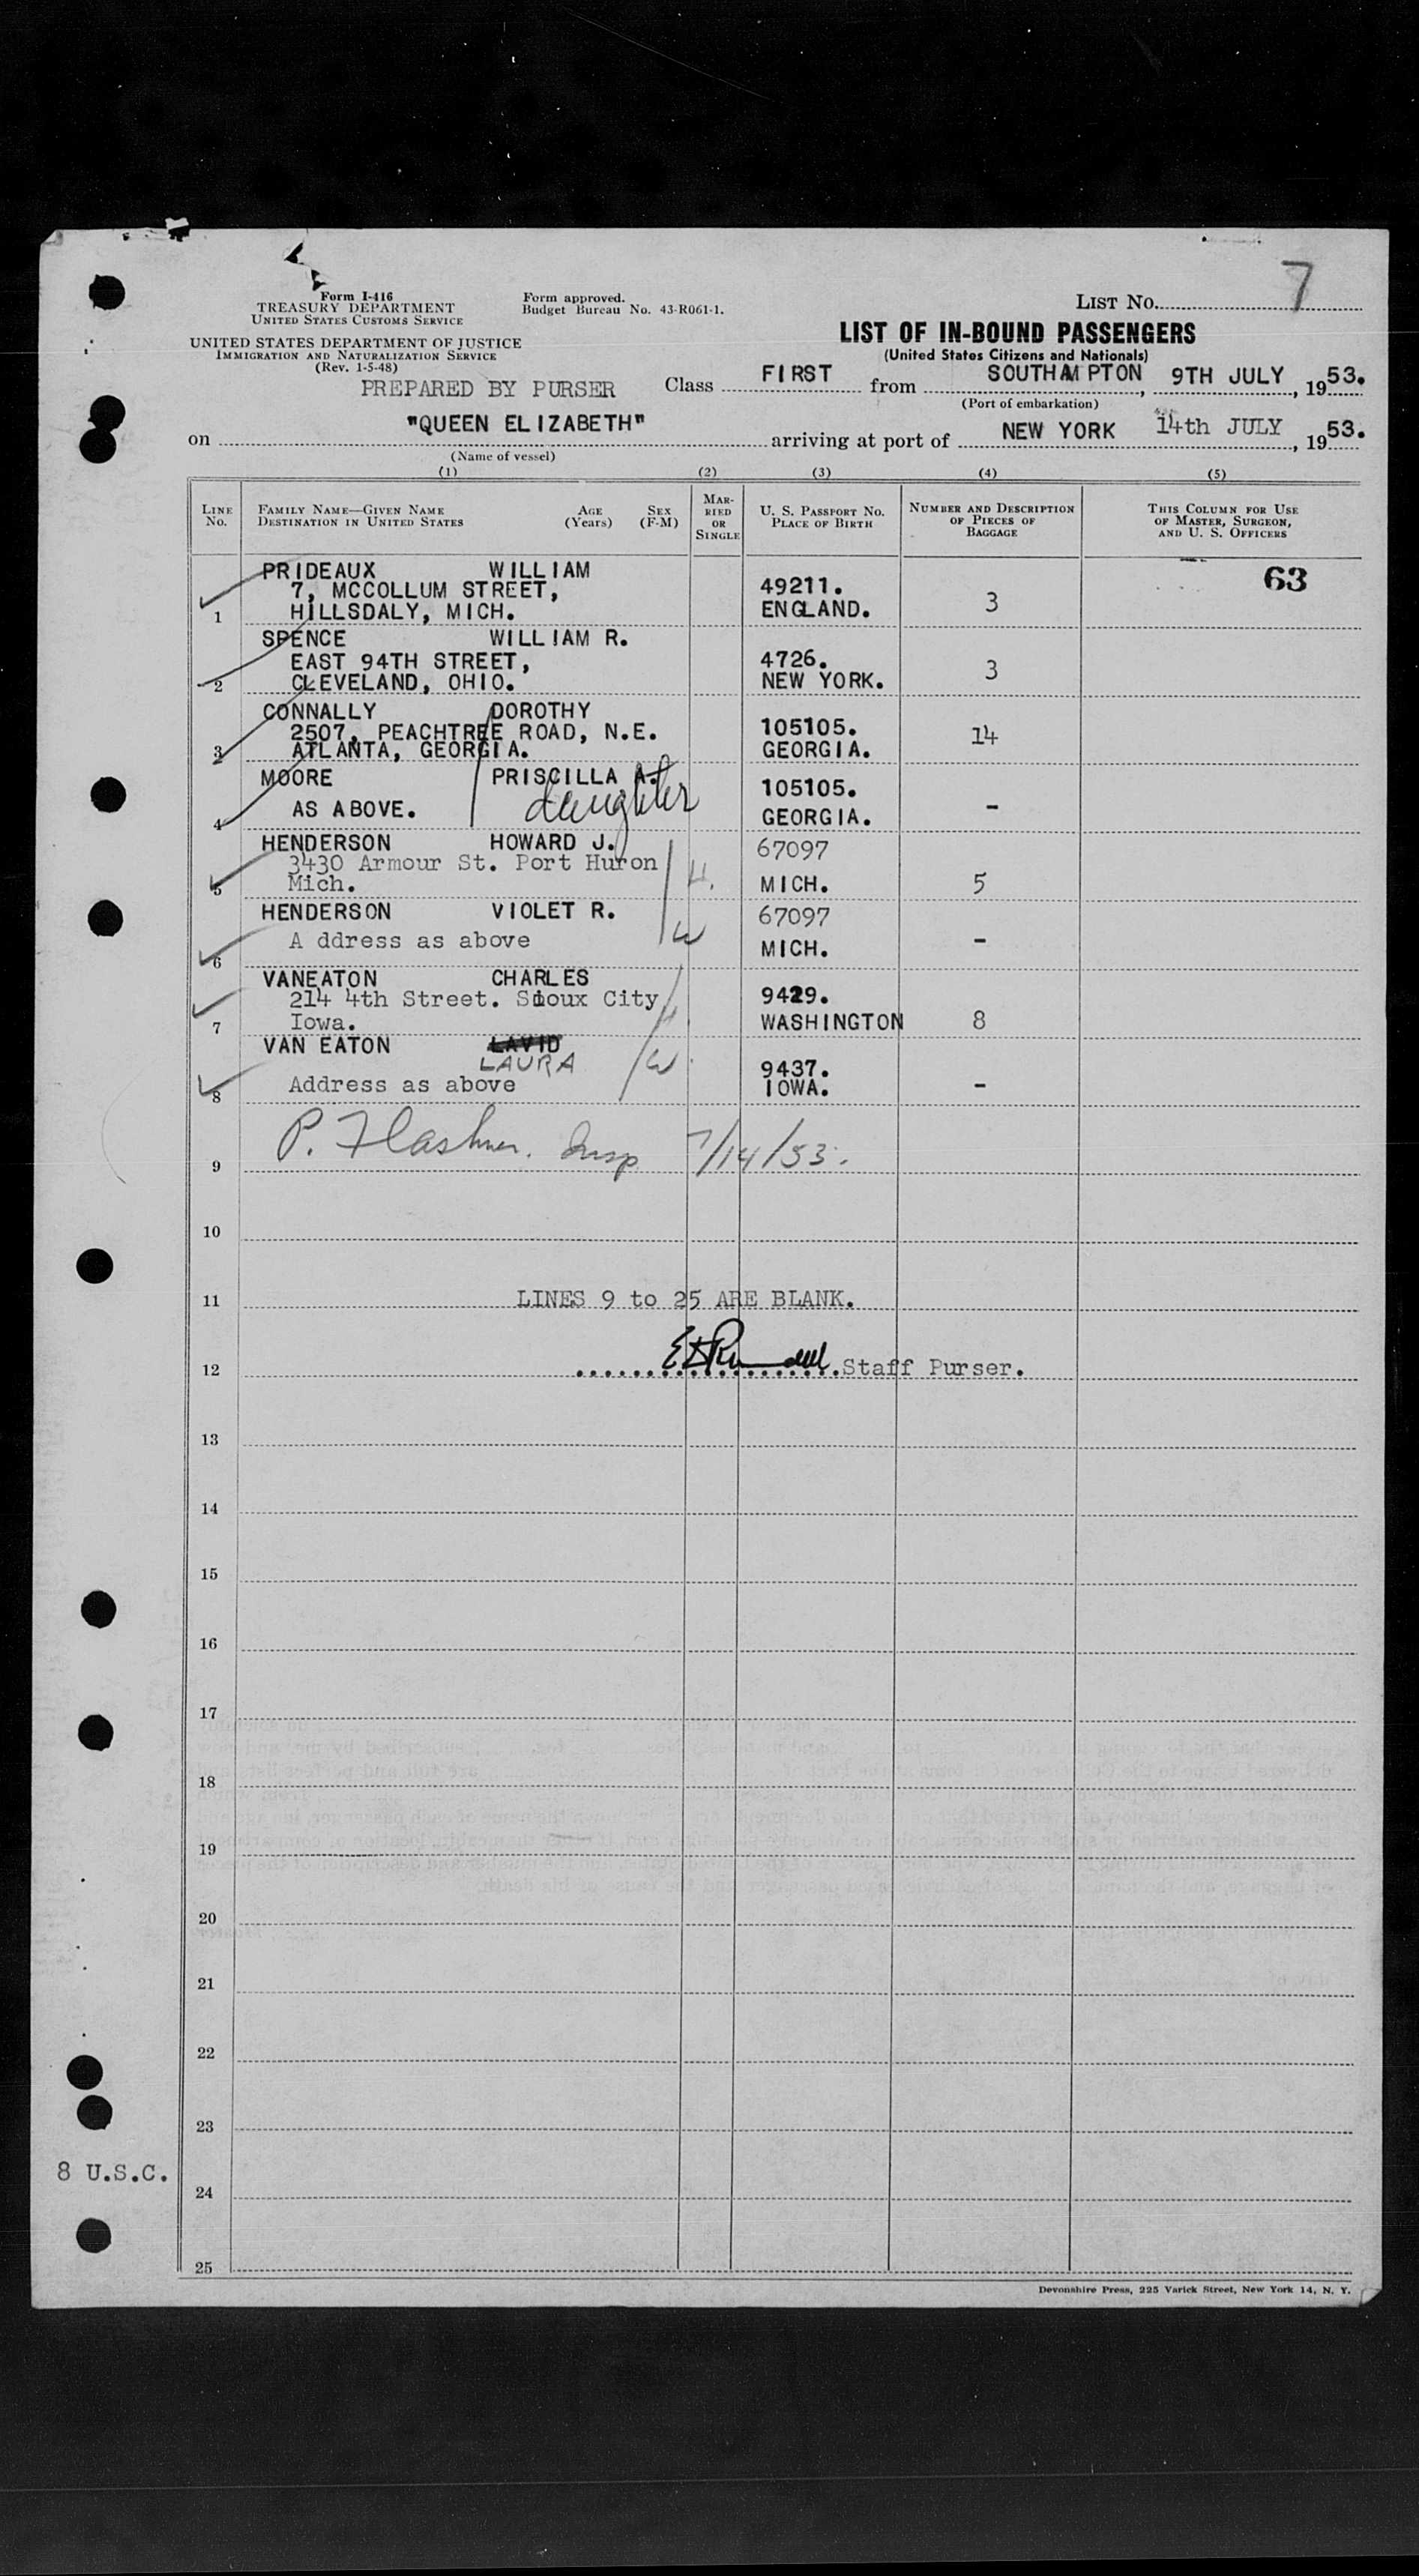 Form I-416
TREASURY DEPARTMENT
UNITED STATES CUSTOMS SERVICE
Form approved.
Budget Bureau No. 43-R061-1.
LIST NO. 7
UNITED STATES DEPARTMENT OF JUSTICE
IMMIGRATION AND NATURALIZATION SERVICE
(Rev. 1-5-48)
LIST OF IN-BOUND PASSENGERS
(United States Citizens and Nationals)
PREPARED BY PURSER Class FIRST from SOUTHAMPTON, 9TH JULY, 1953.
(Port of embarkation)
on "QUEEN ELIZABETH" arriving at port of NEW YORK 14th JULY, 1953.
(Name of vessel)
(1) (2) (3) (4) (5)
LINE NO. FAMILY NAME—GIVEN NAME DESTINATION IN UNITED STATES AGE (Years) SEX (F-M) MARRIED OR SINGLE U. S. PASSPORT NO. PLACE OF BIRTH NUMBER AND DESCRIPTION OF PIECES OF BAGGAGE THIS COLUMN FOR USE OF MASTER, SURGEON, AND U. S. OFFICERS
PRIDEAUX WILLIAM 63
7, MCCOLLUM STREET, 49211.
1 HILLSDALY, MICH. ENGLAND. 3
SPENCE WILLIAM R.
EAST 94TH STREET, 4726.
2 CLEVELAND, OHIO. NEW YORK. 3
CONNALLY DOROTHY
2507, PEACHTREE ROAD, N.E. 105105.
3 ATLANTA, GEORGIA. GEORGIA. 14
MOORE PRISCILLA A. 105105.
4 AS ABOVE. daughter GEORGIA. -
HENDERSON HOWARD J. 67097
3430 Armour St. Port Huron
5 Mich. H. MICH. 5
HENDERSON VIOLET R. 67097
6 A ddress as above W MICH. -
VANEATON CHARLES
214 4th Street. Sioux City 9429.
7 Iowa. H. WASHINGTON 8
VAN EATON LAVID
LAURA W. 9437.
8 Address as above IOWA. -
9 P. Flashner. Insp 7/14/53.
10
11 LINES 9 to 25 ARE BLANK.
12 Staff Purser.
13
14
15
16
17
18
19
20
21
22
23
8 U.S.C.
24
25
Devonshire Press, 225 Varick Street, New York 14, N. Y.